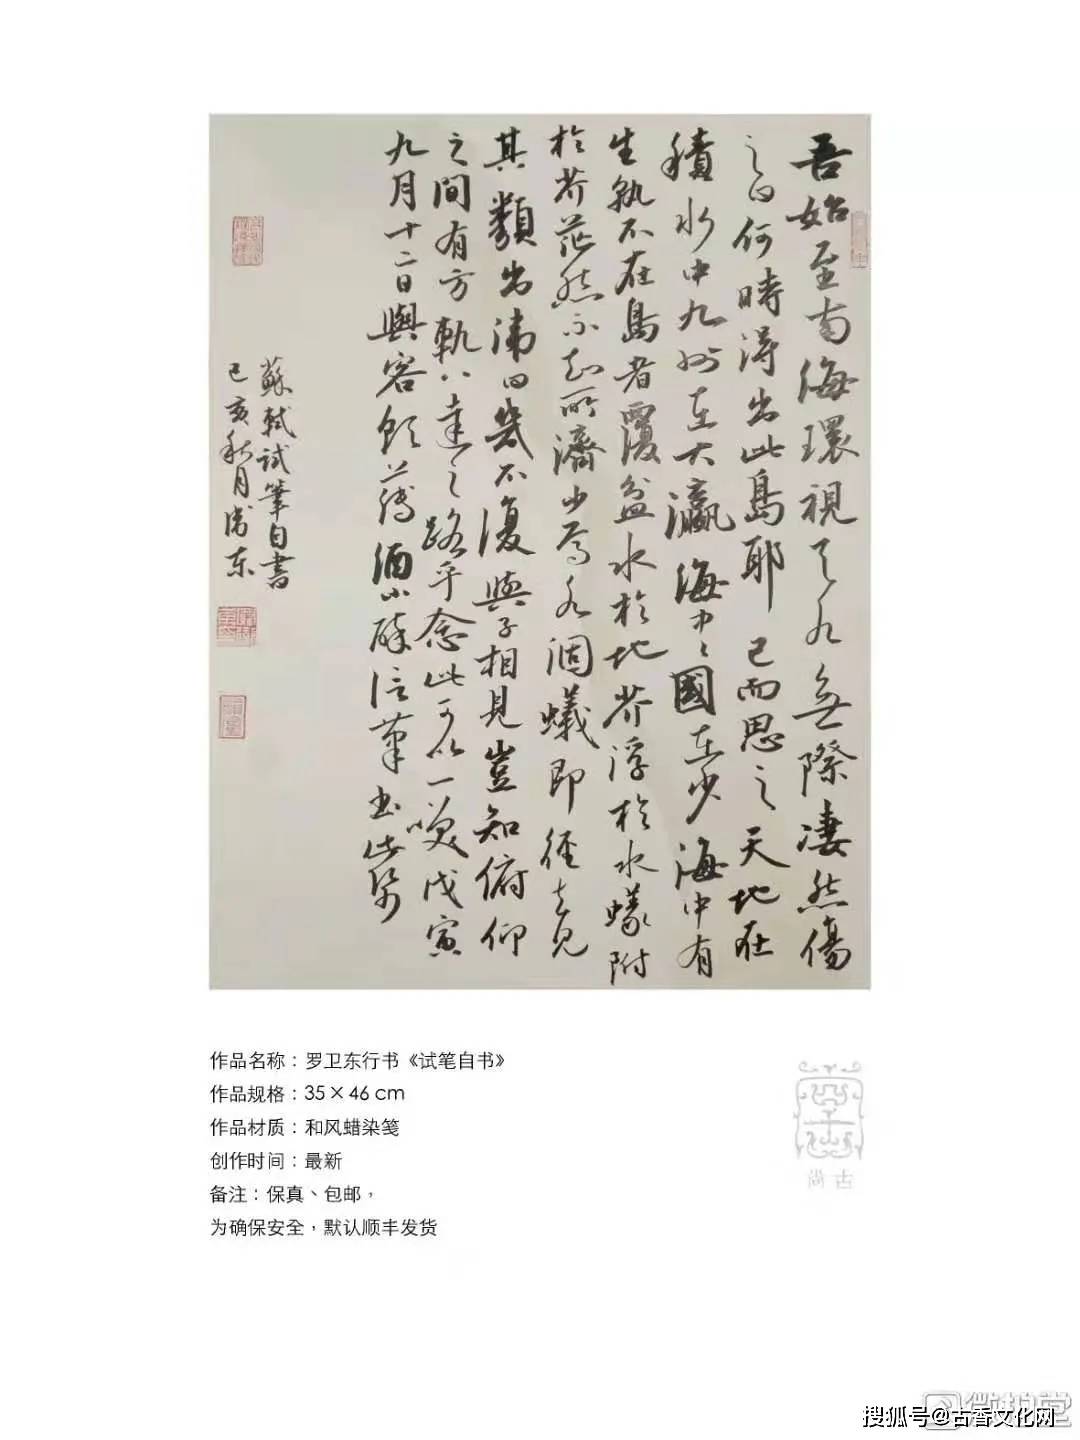 吾始至南海環視天水無際凄然傷
之曰何時得出此島耶已而思之天地在
積水中九州在大瀛海中〻國在少海中有
生孰不在島者覆盆水於地芥浮於水蟻附
於芥茫然不知所濟少焉水涸蟻即徑去見
其類出涕曰幾不復與子相見豈知俯仰
之間有方軌八達之路乎念此可以一笑戊寅
九月十二日與客飲薄酒小醉信筆書此紙
蘇軾試筆自書
己亥秋月衛东
作品名称：罗卫东行书《试笔自书》
作品规格：35×46 cm
作品材质：和风蜡染笺
创作时间：最新
备注：保真、包邮，
为确保安全，默认顺丰发货
尚古
微拍堂
搜狐号@古香文化网